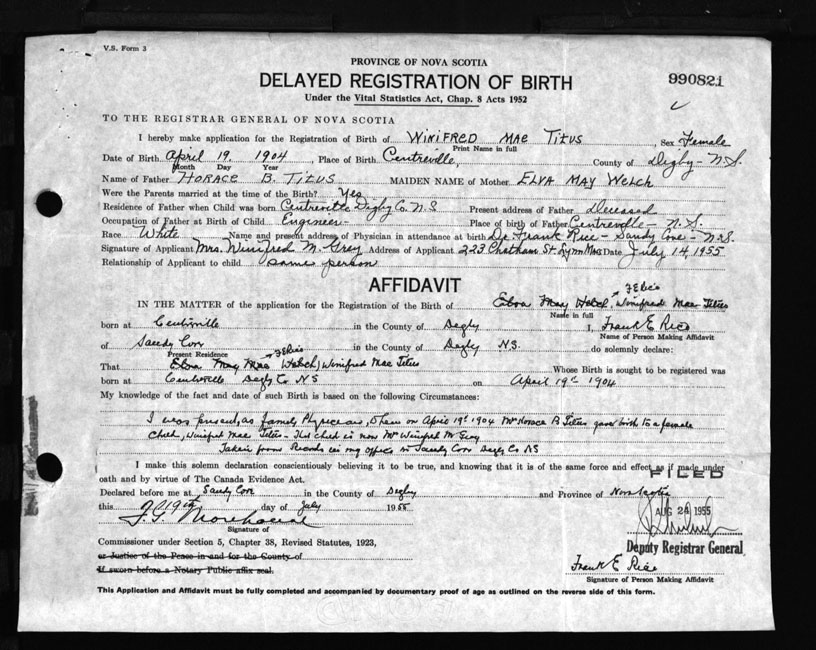 V.S. Form 3
PROVINCE OF NOVA SCOTIA
DELAYED REGISTRATION OF BIRTH
990821
Under the Vital Statistics Act, Chap. 8 Acts 1952
TO THE REGISTRAR GENERAL OF NOVA SCOTIA
I hereby make application for the Registration of Birth of WINIFRED MAE TITUS, Sex Female
Print Name in full
Date of Birth April 19. 1904, Place of Birth Centreville, County of Digby - N.S.
Month Day Year
Name of Father HORACE B. TITUS MAIDEN NAME of Mother ELVA MAY WELCH
Were the Parents married at the time of the Birth? Yes
Residence of Father when Child was born Centreville Digby Co. N.S Present address of Father Deceased
Occupation of Father at Birth of Child Engineer - Place of birth of Father Centreville - N.S.
Race White Name and present address of Physician in attendance at birth Dr. Frank Rice - Sandy Cove - N.S.
Signature of Applicant Mrs. Winifred M. Gray Address of Applicant 223 Chatham St Lynn Mass Date July 14 1955
Relationship of Applicant to child same person
AFFIDAVIT
IN THE MATTER of the application for the Registration of Birth of Elva May Welch, Winifred Mae Titus
Name in full
born at Centreville in the County of Digby I, Frank E Rice
Name of Person Making Affidavit
of Sandy Cove in the County of Digby N.S. do solemnly declare:
Present Residence
That Elva May Mae Welch, Winifred Mae Titus Whose Birth is sought to be registered was
born at Centreville Digby Co NS on April 19th 1904
My knowledge of the fact and date of such Birth is based on the following Circumstances:
I was present, as family Physician, when on April 19th 1904 Mrs Horace B Titus gave birth to a female
Child, Winifred Mae Titus - This child is now Mrs Winifred M Gray
Taken from Records in my Office in Sandy Cove Digby Co NS
I make this solemn declaration conscientiously believing it to be true, and knowing that it is of the same force and effect as if made under
FILED
oath and by virtue of The Canada Evidence Act.
Declared before me at Sandy Cove in the County of Digby and Province of Nova Scotia
this 19th day of July 1955
AUG 24 1955
Signature of
Commissioner under Section 5, Chapter 38, Revised Statutes, 1923,
Deputy Registrar General
or Justice of the Peace in and for the County of
Frank E Rice
If sworn before a Notary Public affix seal.
Signature of Person Making Affidavit
This Application and Affidavit must be fully completed and accompanied by documentary proof of age as outlined on the reverse side of this form.